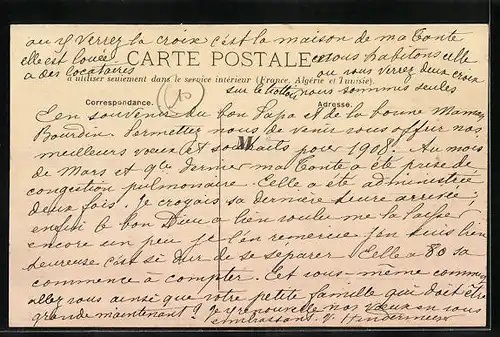 ou y Verrez la croix c'est la maison de ma Tante
elle est louée
CARTE POSTALE
et nous habitons celle
a des locataires
à utiliser seulement dans le service intérieur (France, Algérie et Tunisie).
ou vous verrez deux croix
sur le trottoir nous sommes seules
Correspondance.
Adresse.
En souvenir du bon Papa et de la bonne Maman
Bourdin. Permettez nous de venir vous offrir nos
meilleurs voeux et souhaits pour 1908. Au mois
M
de Mars et dernier ma Tante a été prise de
congestion pulmonaire. Elle a été administrée
deux fois. Je croyais sa dernière heure arrivée,
enfin le bon Dieu a bien voulu me la laisser
encore un peu je l'en remercie j'en suis bien
heureuse c'est si dur de se séparer. Elle a 80 sa
commence à compter. Et vous-même comment
allez vous ainsi que votre petite famille qui doit être
grande maintenant? Je renouvelle nos voeux en vous
embrassant